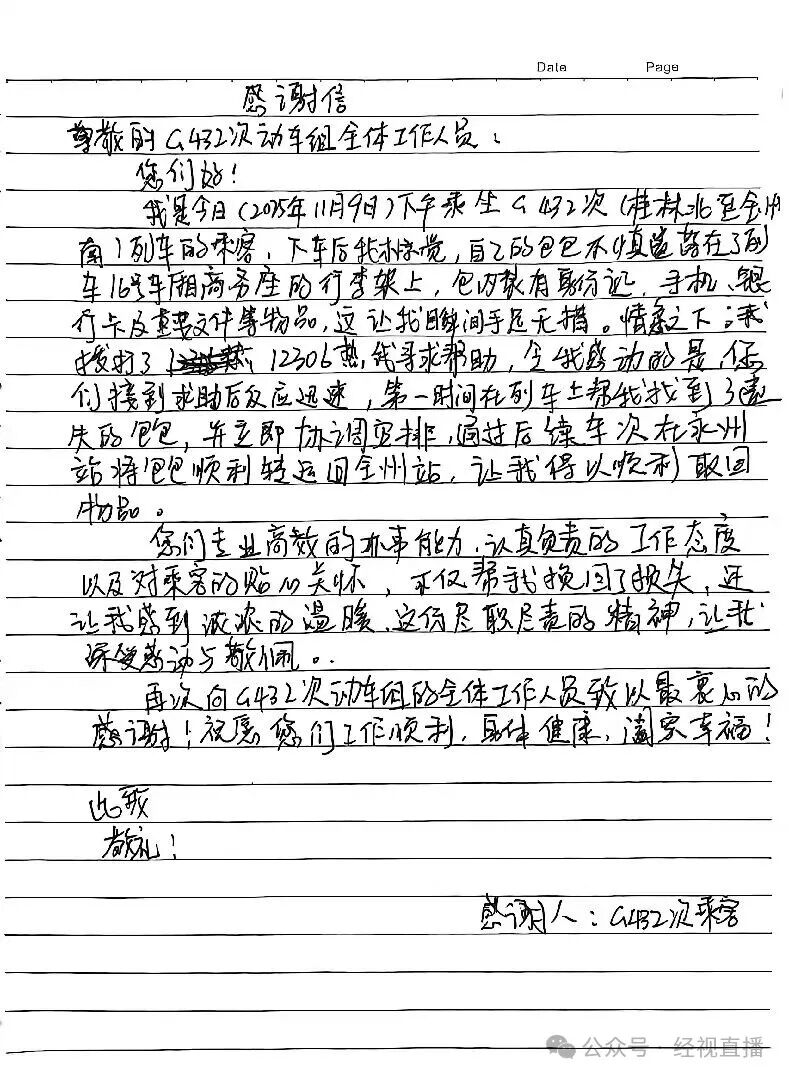 Date Page
感谢信
尊敬的G432次动车组全体工作人员：
您们好！
我是今日（2025年11月9日）下午乘坐G432次（桂林北至全州
南）列车的乘客，下车后我惊觉，自己的包包不慎遗落在了列
车16号车厢商务座的行李架上，包内装有身份证、手机、银
行卡及重要文件等物品，这让我瞬间手足无措。情急之下，我
拨打了12306热线寻求帮助，令我感动的是，你
们接到求助后反应迅速，第一时间在列车上帮我找到了遗
失的包包，并立即协调安排，通过后续车次在永州
站将包包顺利转运回全州站，让我得以顺利取回
物品。
您们专业高效的办事能力、认真负责的工作态度
以及对乘客的贴心关怀，不仅帮我挽回了损失，还
让我感到浓浓的温暖。这份尽职尽责的精神，让我
深受感动与敬佩。
再次向G432次动车组的全体工作人员致以最衷心的
感谢！祝愿您们工作顺利，身体健康，阖家幸福！
此致
敬礼！
感谢人：G432次乘客
公众号·经视直播